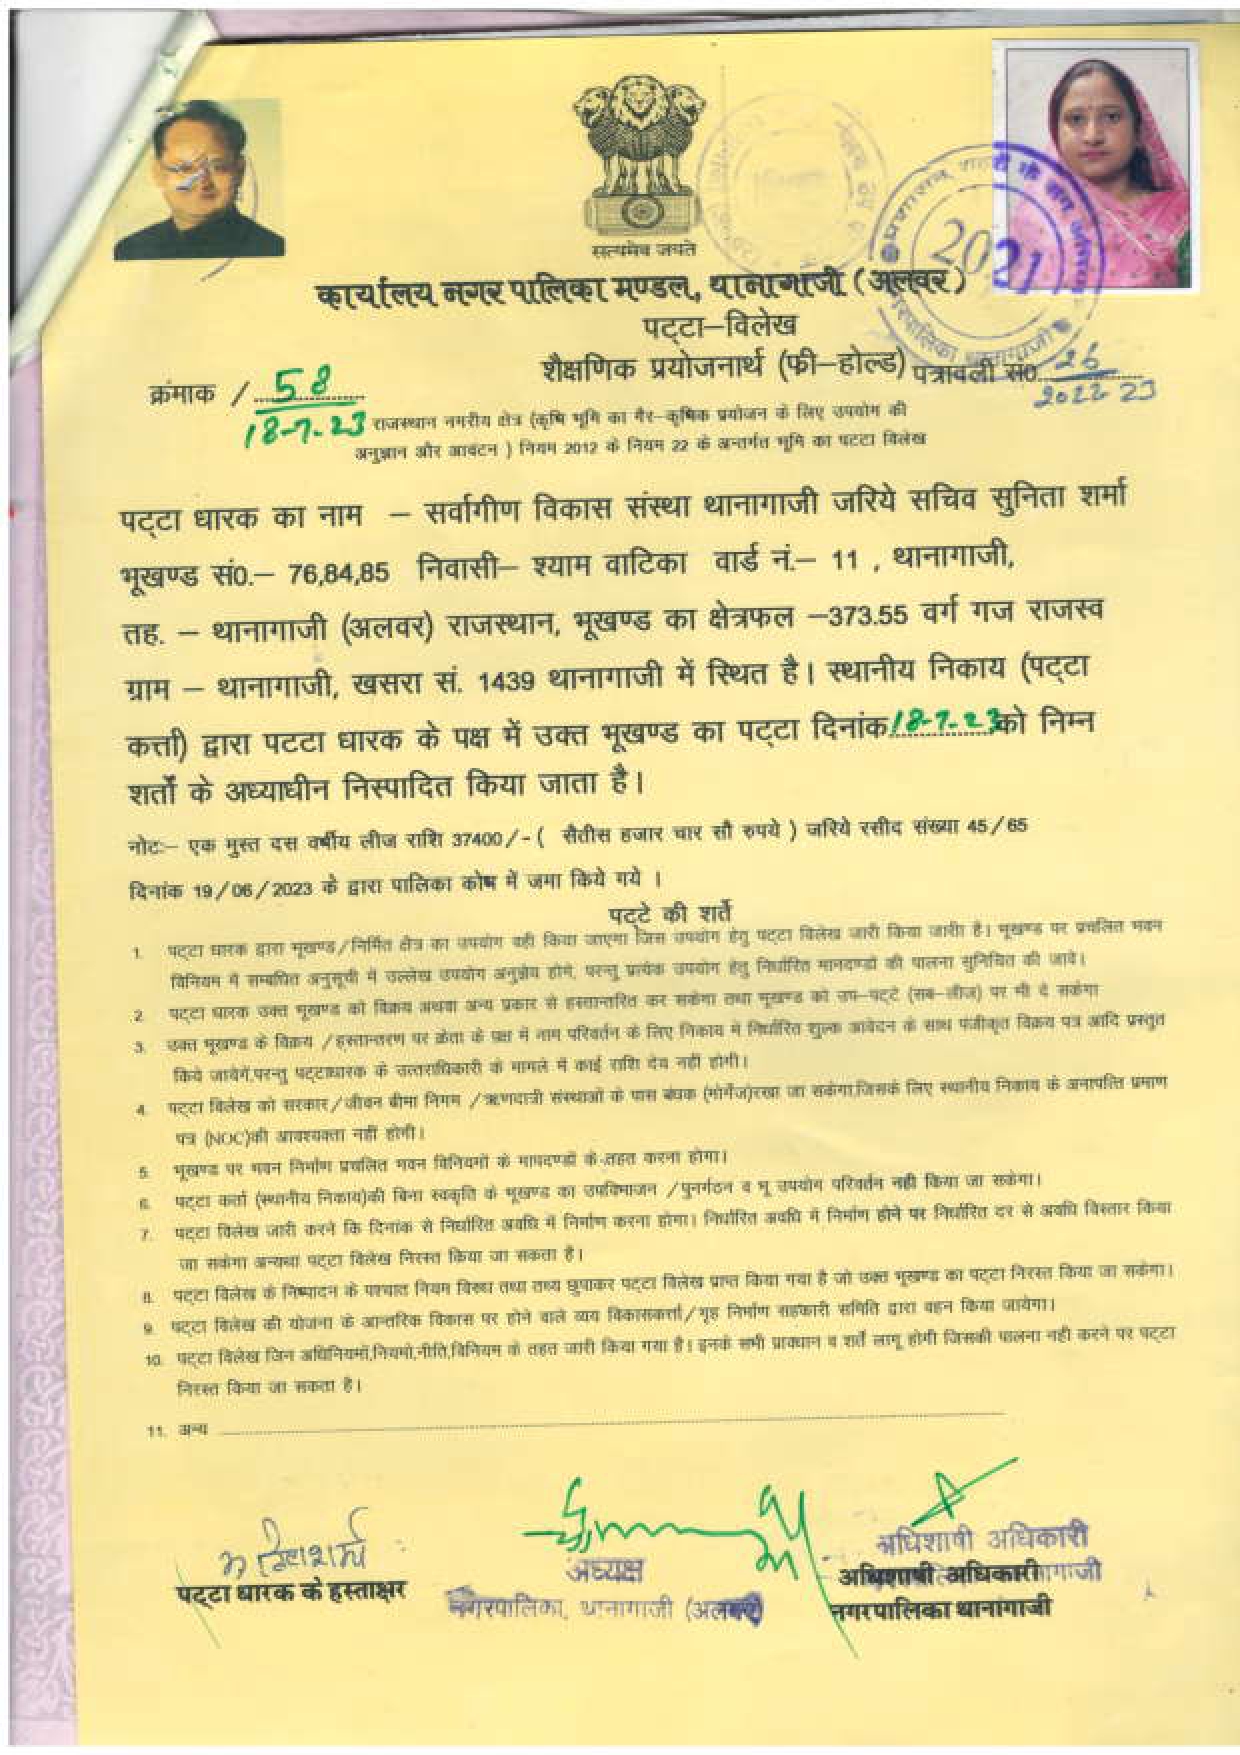 सत्यमेव जयते
2021
कार्यालय नगर पालिका मण्डल, थानागाजी (अलवर)
पट्टा–विलेख
शैक्षणिक प्रयोजनार्थ (फ्री–होल्ड) पत्रावली सं0 26
2022-23
क्रंमाक / 58
18-7-23
राजस्थान नगरीय क्षेत्र (कृषि भूमि का गैर–कृषिक प्रयोजन के लिए उपयोग की
अनुज्ञान और आवंटन ) नियम 2012 के नियम 22 के अन्तर्गत भूमि का पटटा विलेख
पट्टा धारक का नाम – सर्वागीण विकास संस्था थानागाजी जरिये सचिव सुनिता शर्मा
भूखण्ड सं0.– 76,84,85 निवासी– श्याम वाटिका वार्ड नं.– 11 , थानागाजी,
तह. – थानागाजी (अलवर) राजस्थान, भूखण्ड का क्षेत्रफल –373.55 वर्ग गज राजस्व
ग्राम – थानागाजी, खसरा सं. 1439 थानागाजी में स्थित है। स्थानीय निकाय (पट्टा
कर्त्ता) द्वारा पटटा धारक के पक्ष में उक्त भूखण्ड का पट्टा दिनांक 18-7-23 को निम्न
शर्तो के अध्याधीन निस्पादित किया जाता है।
नोटः– एक मुस्त दस वर्षीय लीज राशि 37400/- ( सैतीस हजार चार सौ रुपये ) जरिये रसीद संख्या 45/65
दिनांक 19/06/2023 के द्वारा पालिका कोष में जमा किये गये ।
पट्टे की शर्ते
1. पट्टा धारक द्वारा भूखण्ड/निर्मित क्षेत्र का उपयोग वही किया जाएगा जिस उपयोग हेतु पट्टा विलेख जारी किया जारीा है। भूखण्ड पर प्रचलित भवन
विनियम में सम्बधित अनुसूची में उल्लेख उपयोग अनुज्ञेय होगे, परन्तु प्रत्येक उपयोग हेतु निर्धारित मानदण्डों की पालना सुनिचित की जावे।
2 पट्टा धारक उक्त भूखण्ड को विक्रय अथवा अन्य प्रकार से हस्तान्तरित कर सकेगा तथा भूखण्ड को उप–पट्टे (सब–लीज) पर भी दे सकेगा
3. उक्त भूखण्ड के विक्रय /हस्तान्तरण पर क्रेता के पक्ष में नाम परिवर्तन के लिए निकाय में निर्धारित शुल्क आवेदन के साथ पंजीकृत विक्रय पत्र आदि प्रस्तुत
किये जायेगें,परन्तु पट्टाधारक के उत्तराधिकारी के मामले में काई राशि देय नही होगी।
4. पट्टा विलेख को सरकार/जीवन बीमा निगम /ऋणदात्री संस्थाओं के पास बंधक (मोर्गेज)रखा जा सकेगा,जिसके लिए स्थानीय निकाय के अनापत्ति प्रमाण
पत्र (NOC)की आवश्यक्ता नही होगी।
5. भूखण्ड पर भवन निर्माण प्रचलित भवन विनियमों के मापदण्डों के-तहत करना होगा।
6. पट्टा कर्ता (स्थानीय निकाय)की बिना स्वकृति के भूखण्ड का उपविभाजन /पुनर्गठन व भू उपयोग परिवर्तन नही किया जा सकेगा।
7. पट्टा विलेख जारी करने कि दिनांक से निर्धारित अवधि में निर्माण करना होगा। निर्धारित अवधि में निर्माण होने पर निर्धारित दर से अवधि विस्तार किया
जा सकेगा अन्यथा पट्टा विलेख निरस्त किया जा सकता है।
8. पट्टा विलेख के निष्पादन के पश्चात नियम विरुध तथा तथ्य छुपाकर पट्टा विलेख प्राप्त किया गया है जो उक्त भूखण्ड का पट्टा निरस्त किया जा सकेगा।
9. पट्टा विलेख की योजना के आन्तरिक विकास पर होने वाले व्यय विकासकर्त्ता/गृह निर्माण सहकारी समिति द्वारा वहन किया जायेगा।
10. पट्टा विलेख जिन अधिनियमों,नियमो,नीति,विनियम के तहत जारी किया गया है। इनके सभी प्रावधान व शर्ते लागू होगी जिसकी पालना नही करने पर पट्टा
निरस्त किया जा सकता है।
11. अन्य
पट्टा धारक के हस्ताक्षर
अध्यक्ष
नगरपालिका, थानागाजी (अलवर)
अधिशाषी अधिकारी
अधिशाषी अधिकारी
नगरपालिका थानागाजी